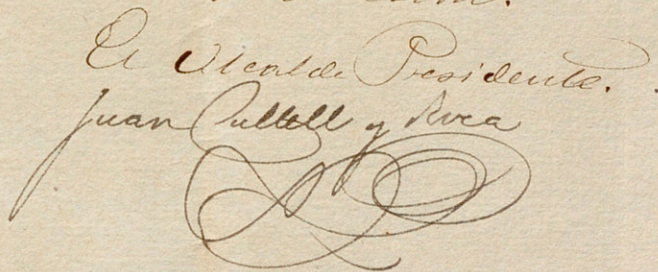 El Alcalde Presidente.
Juan Cuttell y Roca